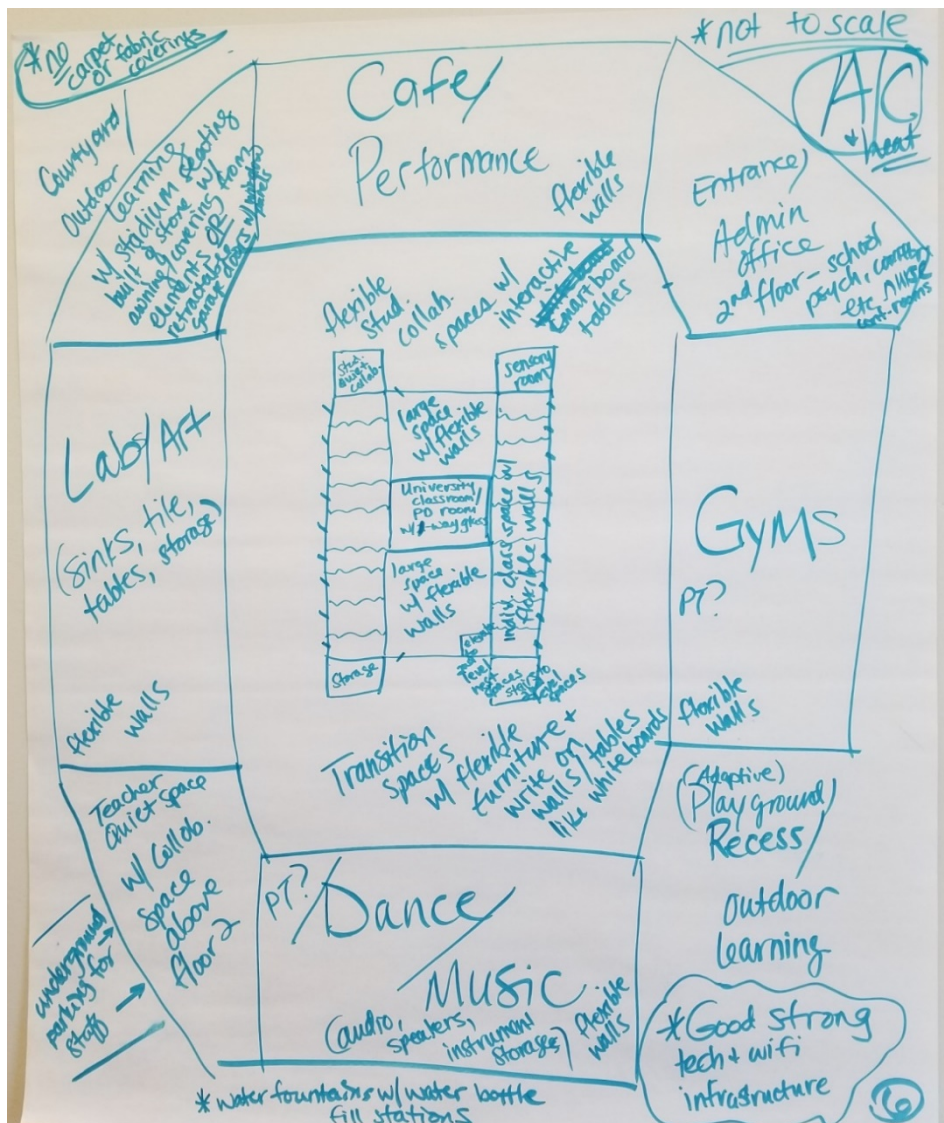 *no
carpet
or fabric
coverings
*not to scale
A/C
+ heat
Courtyard/
Outdoor
learning
w/ stadium seating
built of stone w/
awning/covering from
elements OR
retractable
garage doors w/ window
panels
Cafe/
Performance
flexible
walls
Entrance/
Admin
office
2nd floor - school
psych,
etc. nurse
conf. rooms
flexible
stud.
collab.
spaces w/
interactive
smartboard
tables
Labs/Art
(sinks, tile,
tables, storage)
flexible
walls
stud.
quiet
collab.
sensory
room
large
space
w/flexible
walls
University
classroom/
PD room
w/1-way glass
large
space
w/ flexible
walls
indiv. class space w/
flexible walls
storage
level
spaces
stairs to
level
spaces
Gyms
PT?
flexible
walls
Transition
spaces
w/ flexible
furniture +
write on
walls/tables
like whiteboards
Teacher
Quiet space
w/ collab.
space
above
floor 2
underground
parking for
staff
PT?/Dance/
Music
(audio,
speakers,
instrument
storage)
flexible
walls
(Adaptive)
(Playground/
Recess/
outdoor
learning
*Good strong
tech + wifi
infrastructure
6
*water fountains w/water bottle
fill stations